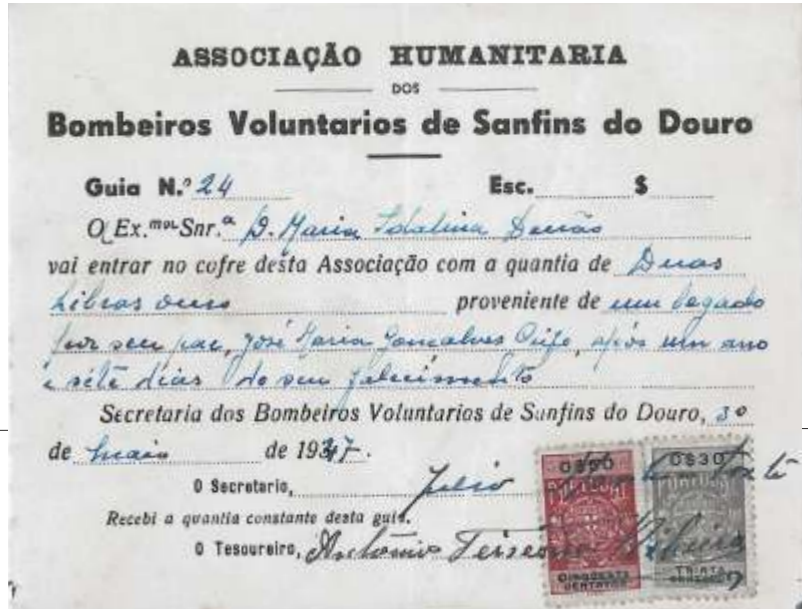 ASSOCIAÇÃO HUMANITARIA
DOS
Bombeiros Voluntarios de Sanfins do Douro
Guia N.º 24 Esc. $
O Ex.mª Snr.ª D. Maria Idalina
vai entrar no cofre desta Associação com a quantia de Duas
Libras ouro proveniente de um legado
por seu pae, José Maria Goncalves, após um ano
e sete dias do seu falecimento
Secretaria dos Bombeiros Voluntarios de Sanfins do Douro, 30
de maio de 1947.
O Secretario, Julio
Recebi a quantia constante desta guia.
O Tesoureiro, Antonio Teixeira Ribeiro
0$50
0$30
CINQUENTA
CENTAVOS
TRINTA
CENTAVOS